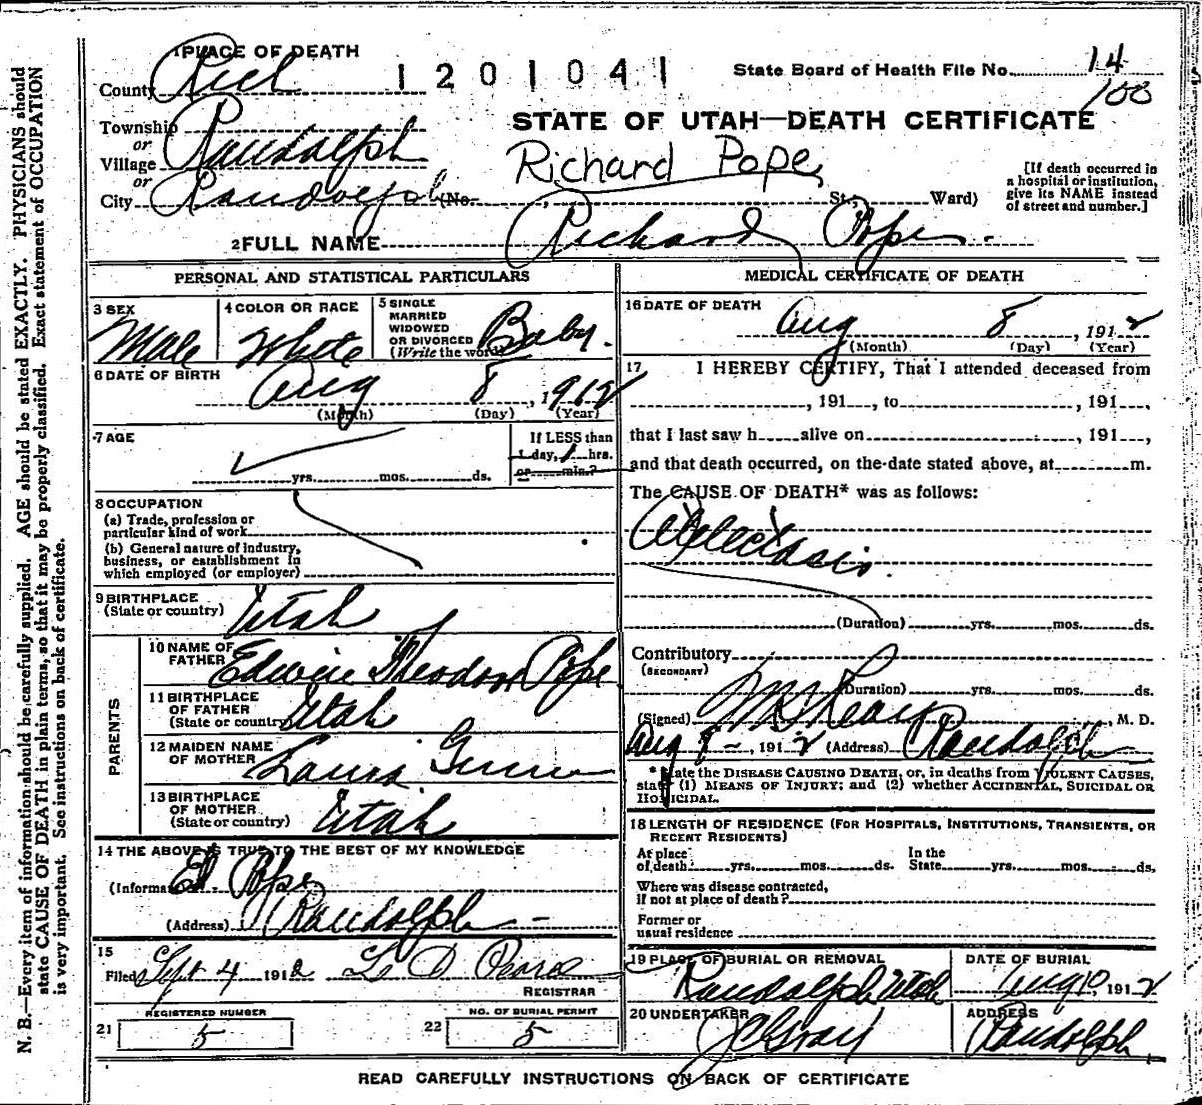 1 PLACE OF DEATH
County Rich
1201041
State Board of Health File No. 14
100
Township Randolph
or
Village
or
City Randolph (No. St. Ward)
STATE OF UTAH—DEATH CERTIFICATE
Richard Pope
[If death occurred in a hospital or institution, give its NAME instead of street and number.]
2 FULL NAME Richard Pope.
PERSONAL AND STATISTICAL PARTICULARS
3 SEX
Male
4 COLOR OR RACE
White
5 SINGLE
MARRIED
WIDOWED
OR DIVORCED
(Write the word)
Baby.
6 DATE OF BIRTH
Aug 8, 1912
(Month) (Day) (Year)
7 AGE
yrs. mos. ds.
If LESS than
1 day, 1 hrs.
or min.?
8 OCCUPATION
(a) Trade, profession or
particular kind of work
(b) General nature of industry,
business, or establishment in
which employed (or employer)
9 BIRTHPLACE
(State or country) Utah
PARENTS
10 NAME OF
FATHER Edwin Theodore Pope
11 BIRTHPLACE
OF FATHER
(State or country) Utah
12 MAIDEN NAME
OF MOTHER Laura
13 BIRTHPLACE
OF MOTHER
(State or country) Utah
14 THE ABOVE IS TRUE TO THE BEST OF MY KNOWLEDGE
(Informant) Ed. Pope
(Address) Randolph
15
Filed Sept 4 1912 L D Pearce
REGISTRAR
REGISTERED NUMBER
21 5
NO. OF BURIAL PERMIT
22 5
MEDICAL CERTIFICATE OF DEATH
16 DATE OF DEATH
Aug 8, 1912
(Month) (Day) (Year)
17 I HEREBY CERTIFY, That I attended deceased from
, 191 , to , 191 ,
that I last saw h alive on , 191 ,
and that death occurred, on the date stated above, at m.
The CAUSE OF DEATH* was as follows:
Atelectasis.
(Duration) yrs. mos. ds.
Contributory
(SECONDARY)
(Duration) yrs. mos. ds.
(Signed) , M. D.
Aug 9 -, 1912 (Address) Randolph
* State the DISEASE CAUSING DEATH, or, in deaths from VIOLENT CAUSES,
state (1) MEANS OF INJURY; and (2) whether ACCIDENTAL, SUICIDAL OR
HOMICIDAL.
18 LENGTH OF RESIDENCE (FOR HOSPITALS, INSTITUTIONS, TRANSIENTS, OR
RECENT RESIDENTS)
At place
of death yrs. mos. ds.
In the
State yrs. mos. ds.
Where was disease contracted,
if not at place of death?
Former or
usual residence
19 PLACE OF BURIAL OR REMOVAL
Randolph Utah
DATE OF BURIAL
Aug 10, 1912
20 UNDERTAKER
J C Gray
ADDRESS
Randolph
READ CAREFULLY INSTRUCTIONS ON BACK OF CERTIFICATE
N. B.—Every item of information should be carefully supplied. AGE should be stated EXACTLY. PHYSICIANS should
state CAUSE OF DEATH in plain terms, so that it may be properly classified. Exact statement of OCCUPATION
is very important. See instructions on back of certificate.